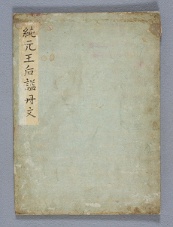 純元王后諡冊文